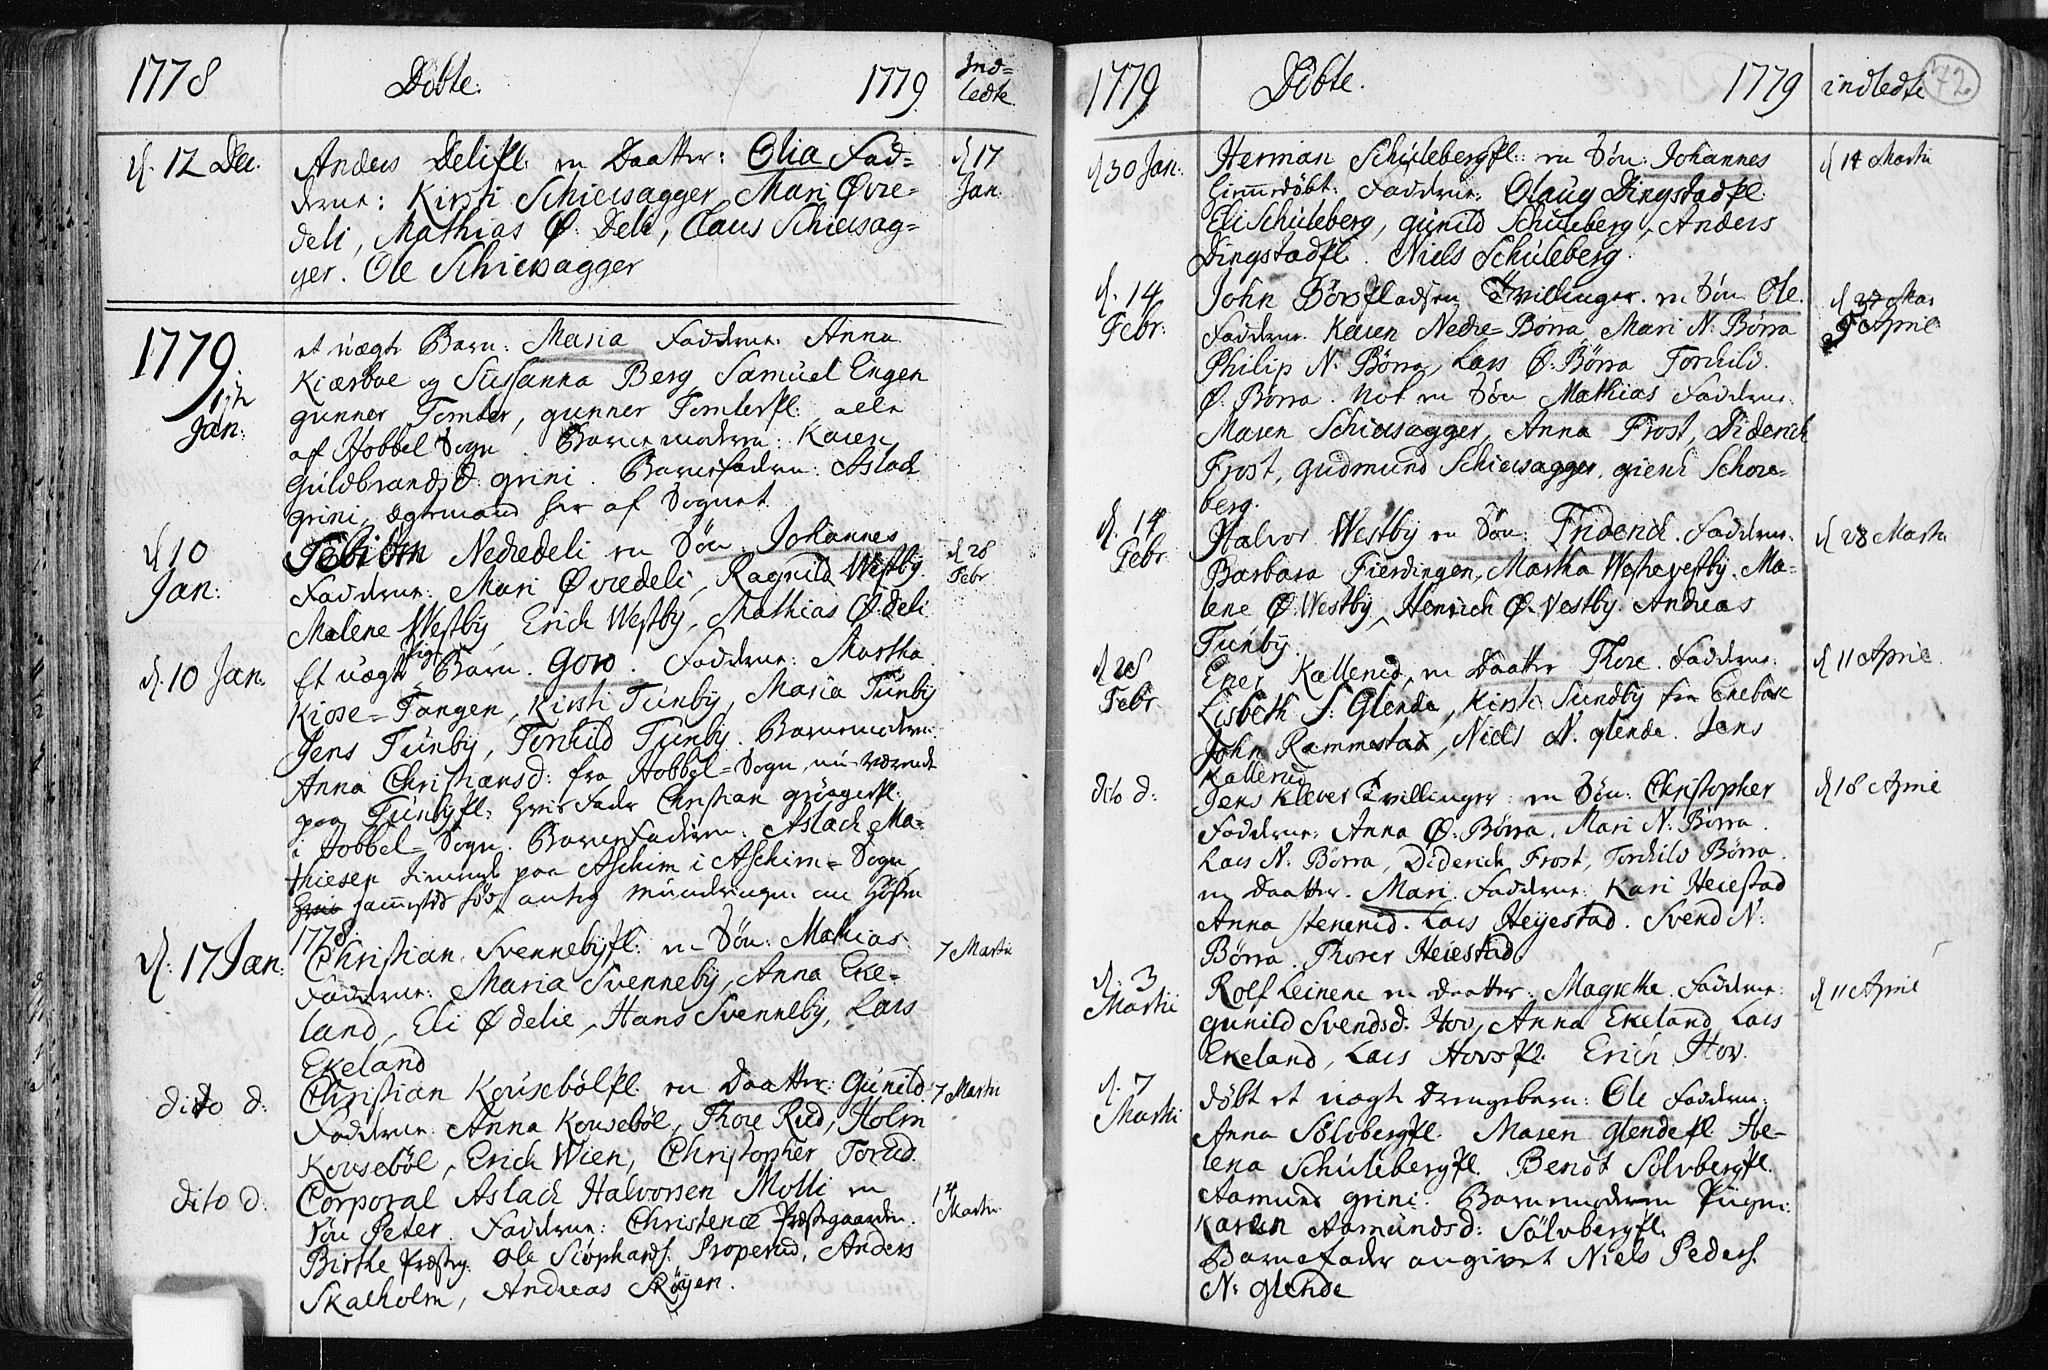 1778 Døbte. 1779 Ind=
ledte.
d. 12 Dec. Anders Delifl. en Daatter: Olia Fad= d 17
derne: Kirsti Schiersagger, Mari Øvre= Jan.
deli, Mathias Ø. Deli, Claus Schiersag=
ger. Ole Schiersagger
1779 et uægte Barn: Maria Fadderne. Anna
Kiærboe og Susanna Berg, Samuel Engen
Jan: gunner Tomter, gunner Tomterfl. alle
af Hobbel Sogn. Barnemoderen: Karen
Guldbrandsd. grini. Barnefaderen: Aslach
grini, Egtemand her af Sognet.
d 10 Nedredeli en Søn. Johannes d 28
Jan: Fadderne: Mari Øvredeli, Ragnild Westby Febr.
Malene Westby, Erich Westby, Mathias Ø. deli
d. 10 Jan. Et uægte Pige Barn. Goro. Fadderne: Martha
Kiose=Tangen, Kirsti Tunby, Maria Tunby
Jens Tunby, Torkild Tunby. Barnemoderen
Anna Christiansd: fra Hobbel=Sogn, nu værende
paa Tunbyfl. hvis Fader Christian
i Hobbel=Sogn. Barnefaderen: Aslach Ma=
thiesen tienende paa Aschim i Aschim=Sogn
sammested
1778.
d. 17 Jan: Christian Svennebyfl. en Søn: Mathias. 7 Martii
Fadderne: Maria Svenneby, Anna Eke=
land, Eli Ødelie, Hans Svenneby, Lars
Ekeland
dito d: Christian Kousebølfl. en Daatter: Gunild. 7 Martii
Fadderne: Anna Kousebøl, Thore Rud, Holm
Kousebøl, Erich Wien, Christopher Torud.
dito d. Corporal Aslach Halvorsen Molli en 14
Søn Peter. Fadderne: Christence Præstegaarden. Martii
Birthe Præsteg. Ole Properud, Anders
Skalholm, Andreas Skøyen.
1779 Døbte. 1779 indledte 42
d 30 Jan: Herman Schulebergfl: en Søn: Johannes d 14 Martii
hiemedøbt: Fadderne: Olaug Dingstadfl.
Eli Schuleberg, gunild Schuleberg, Anders
Dingstadfl. Niels Schuleberg.
d. 14 John Tvillinger. en Søn Ole. d
Febr: Fadderne. Karen Nedre=Børra, Mari N: Børra April
Philip N: Børra, Lars Ø: Børra Torchild
Ø. Børra. Nok en Søn Mathias Fadderne.
Maren Schiersagger, Anna Frost, Diderich
Frost, gudmund Schiersagger, Schore=
berg.
d. 14 Halvor Westby en Søn: Friderich. Fadderne: d 28 Martii
Febr. Barbara Fierdingen, Martha Westrevestby. Ma=
lene Ø. Westby, Henrich Ø. Vestby. Andreas
Tunby.
d 28 Ener Kallerud, en Daatter Thore. Fadderne: d 11 April.
Febr. Lisbeth S: Glende, Kirsti Sundby fra Enebak
John Rammestad, Niels N. glende. Jens
Kallerud
dito d: Jens Klever Tvillinger: en Søn: Christopher d 18 April
Fadderne: Anna Ø. Børra. Mari N: Børra.
Lars N: Børra, Diderich Frost, Torchild Børra.
en Daatter. Mari. Fadderne: Kari Heiestad
Anna Stenerud. Lars Heyestad. Svend N:
Børra. Thorer Heiestad.
d. 3 Rolf Leinene en Daatter: Magrethe. Fadderne: d 11 April
Martii gunild Svendsd. Hov, Anna Ekeland, Lars
Ekeland, Lars Hovsfl. Erich Hov.
d. 7 døbt et uægte Drengebarn: Ole Fadderne:
Martii Anna Sølvbergfl. Maren glendefl. He=
lena Schulebergfl. Bendt Sølvbergfl.
Aamund grini. Barnemoderen Pigen:
Karen Aamundsd: Sølvbergfl.
Barnefader angivet Niels Peders.
N: glende